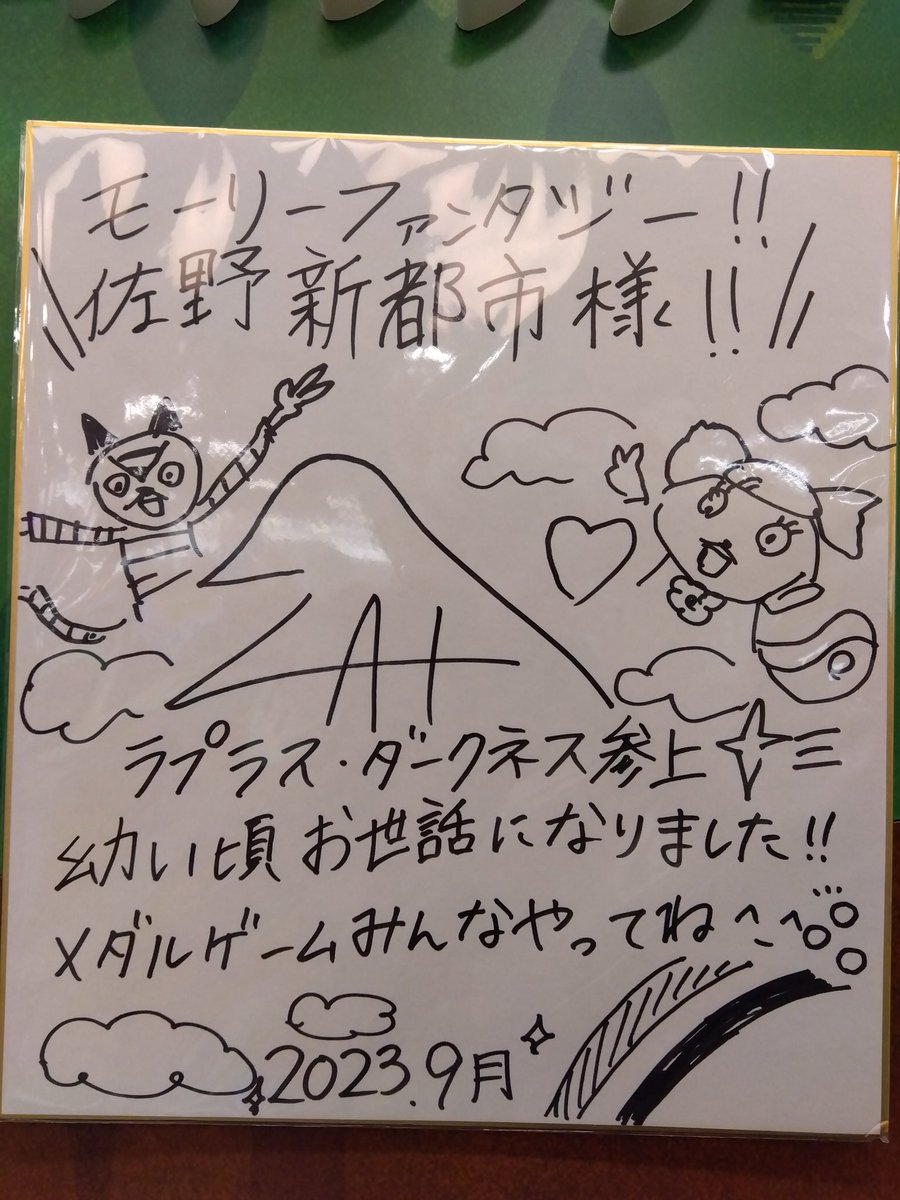 モーリーファンタジー!!
佐野新都市様!!
ラプラス・ダークネス参上
幼い頃お世話になりました!!
メダルゲームみんなやってね^_^
2023.9月